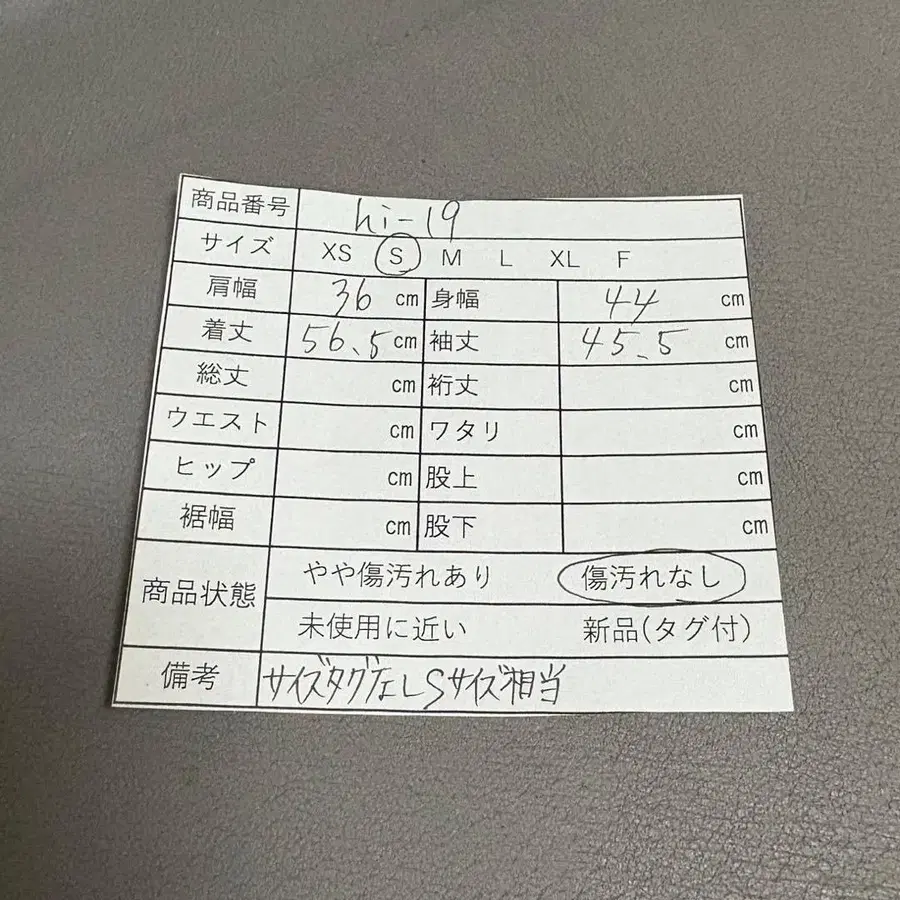 商品番号 hi-19
サイズ XS S M L XL F
肩幅 36 cm 身幅 44 cm
着丈 56.5 cm 袖丈 45.5 cm
総丈 cm 裄丈 cm
ウエスト cm ワタリ cm
ヒップ cm 股上 cm
裾幅 cm 股下 cm
商品状態 やや傷汚れあり 傷汚れなし
未使用に近い 新品(タグ付)
備考 サイズタグなし Sサイズ相当